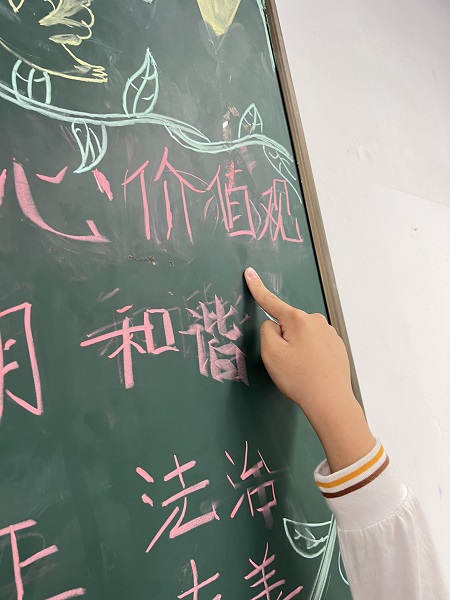 心价值观
明和谐
法治
正
友善